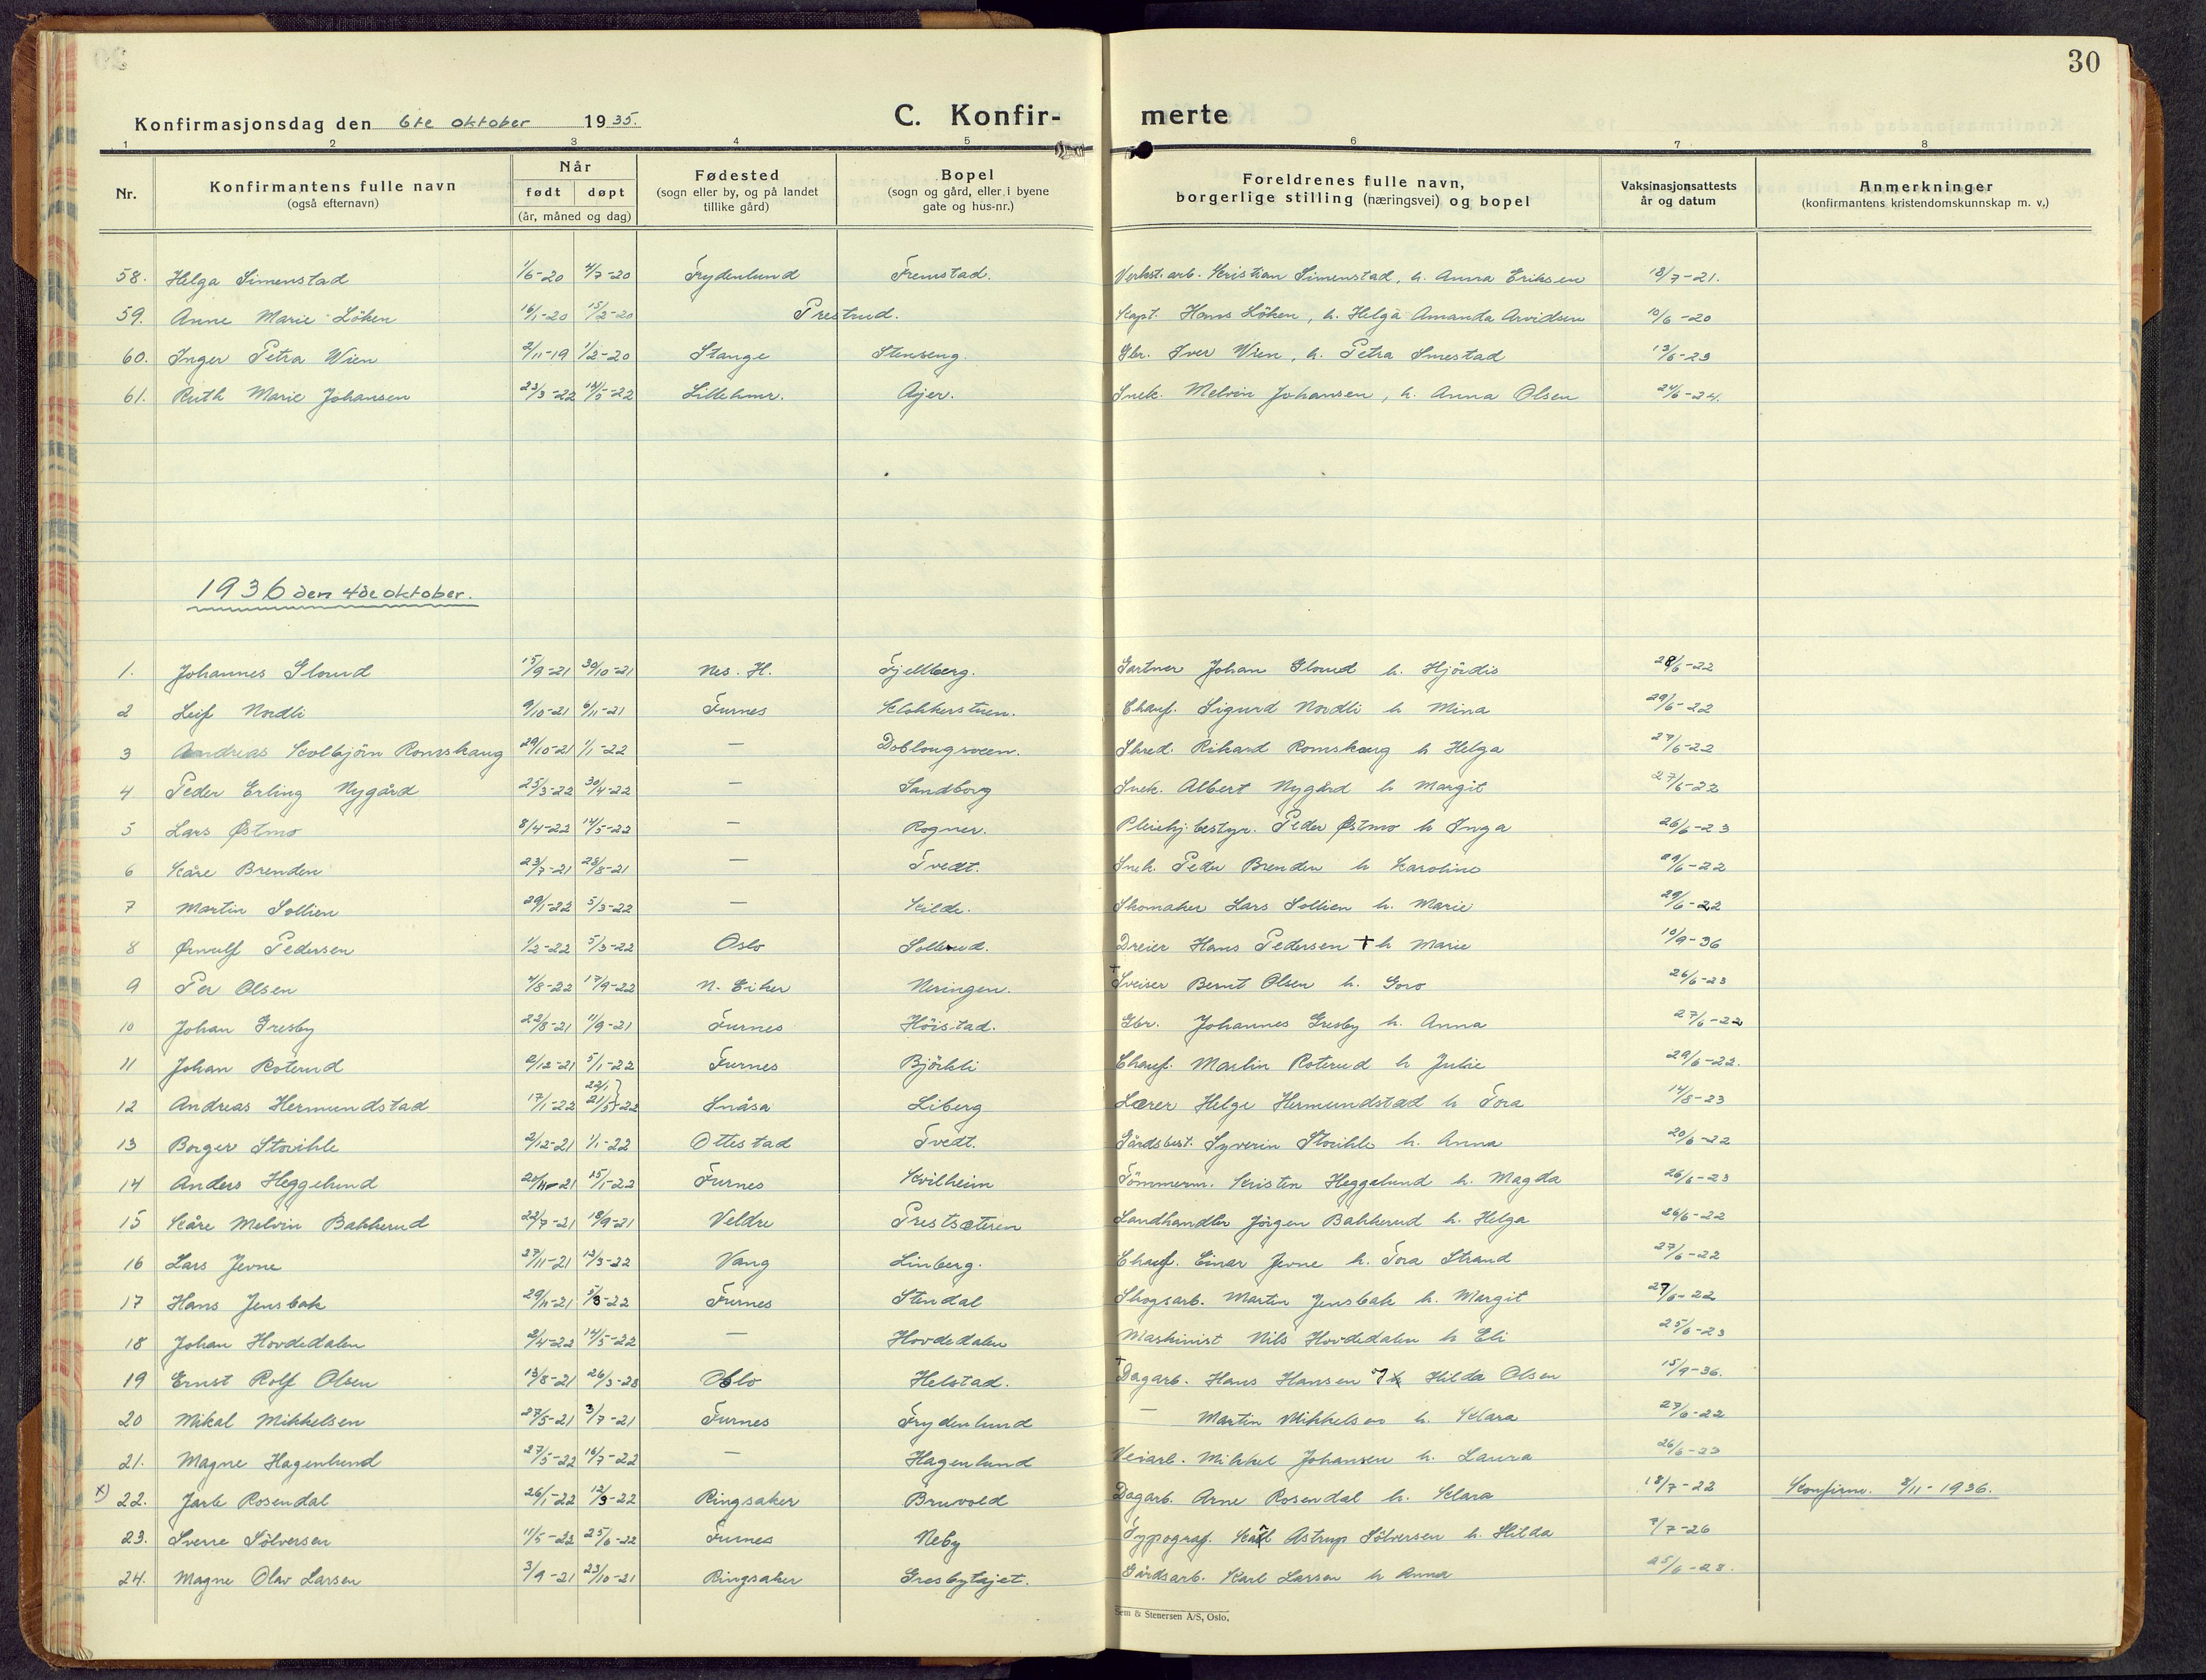 30
Konfirmasjonsdag den 6te oktober 1935.
C. Konfir- merte
1 2 3 4 5 6 7 8
Nr. Konfirmantens fulle navn (også efternavn) Når født døpt (år, måned og dag) Fødested (sogn eller by, og på landet tillike gård) Bopel (sogn og gård, eller i byene gate og hus-nr.) Foreldrenes fulle navn, borgerlige stilling (næringsvei) og bopel Vaksinasjonsattests år og datum Anmerkninger (konfirmantens kristendomskunnskap m. v.)
58. Helga Simenstad 1/6-20 4/7-20 Frydenlund Fremstad. Verkst. arb. Kristian Simenstad, h. Anna Eriksen 18/7-21.
59. Anne Marie Löken 16/1-20 15/2-20 Prestrud. Kapt. Hans Löken, h. Helga Amanda Arvidsen 10/6-20
60. Inger Petra Wien 2/11-19 1/2-20 Stange Stenseng. Gbr. Iver Wien, h. Petra Smestad 13/6-23
61. Ruth Marie Johansen 23/3-22 14/5-22 Lillehmr. Ajer. Snek. Melvin Johansen, h. Anna Olsen 24/6-24.
1936 den 4de oktober.
1. Johannes Glorud 15/9-21 30/10-21 Nes. H. Fjellberg. Gartner Johan Glorud h. Hjördis 28/6-22
2 Leif Nordli 9/10-21 6/11-21 Furnes Klokkerstuen. Chauf. Sigurd Nordli h Mina 29/6-22
3 Andreas Kolbjörn Romskaug 29/10-21 1/1-22 — Doblougsveen. Skred. Rikard Romskaug h Helga 27/6-22
4 Peder Erling Nygård 25/3-22 30/4-22 — Sandborg Snek. Albert Nygård h Margit 27/6-22
5 Lars Østmo 8/4-22 14/5-22 — Rogner. Pleiehj. bestyr. Peder Østmo h Inga 26/6-23
6 Kåre Brenden 23/7-21 28/8-21 — Tvedt. Snek. Peder Brenden h Karoline 29/6-22
7 Martin Sollien 29/1-22 5/3-22 — Kilde. Skomaker Lars Sollien h. Marie 29/6-22
8 Ørnulf Pedersen 1/2-22 5/3-22 Oslo Sollerud. Dreier Hans Pedersen + h Marie 10/9-36
9 Per Olsen 4/8-22 17/9-22 N. Eiker Neringen. + Sveiser Bernt Olsen h. Goro 26/6-23
10 Johan Gresby 22/8-21 11/9-21 Furnes Höistad. Gbr. Johannes Gresby h. Anna 27/6-22
11 Johan Roterud 9/12-21 5/1-22 Furnes Björkli Chauf. Martin Roterud h Julie 29/6-22.
12 Andreas Hermundstad 17/1-22 22/1 21/5}-22 Snåsa Liberg Lærer Helge Hermundstad h Tora 14/8-23
13 Borger Storihle 2/12-21 1/1-22 Ottestad Tvedt. Gårdsbest. Syverin Storihle h. Anna 20/6-22
14 Anders Heggelund 15/1-22 Furnes Kvilheim Tömmerm. Kristen Heggelund h. Magda 26/6-23
15 Kåre Melvin Bakkerud 22/7-21 18/9-21 Veldre Prestsæteren Landhandler Jörgen Bakkerud h. Helga 26/6-22
16 Lars Jevne 27/11-21 12/3-22 Vang Linberg. Chauf. Einar Jevne h. Tora Strand 27/6-22
17 Hans Jensbak 29/11-21 5/3-22 Furnes Stendal Skogsarb. Martin Jensbak h. Margit 27/6-22
18 Johan Hovdedalen 2/4-22 14/5-22 — Hovdedalen Maskinist Nils Hovdedalen h Eli 25/6-23
19 Ernst Rolf Olsen 13/8-21 26/3-28 Oslo Helstad. + Dagarb. Hans Hansen Hilda Olsen 15/9-36.
20 Mikal Mikkelsen 27/5-21 3/7-21 Furnes Frydenlund — Martin Mikkelsen h. Klara 27/6-22
21. Magne Hagenlund 27/5-22 16/7-22 — Hagenlund Veiarb. Mikkel Johansen h. Laura 26/6-23
x) 22. Jarle Rosendal 26/1-22 12/3-22 Ringsaker Bruvold Dagarb. Arne Rosendal h. Klara 18/7-22 Konfirm. 8/11-1936.
23. Sverre Sölversen 11/5-22 25/6-22 Furnes Neby Typograf. Karl Astrup Sölversen h. Hilda 7/7-26
24. Magne Olav Larsen 3/9-21 23/10-21 Ringsaker Gresbytajet. Gårdsarb. Karl Larsen h Anna 25/6-28.
Sem & Stenersen A/S, Oslo.